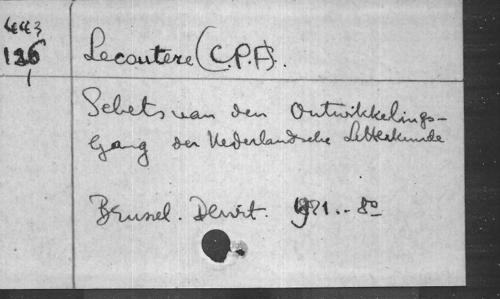 126
1
Lecoutere (C.P.F.).
Schets van den Ontwikkelings-
gang der Nederlandsche Letterkunde
Brussel. Dewit. 1921.. 8º